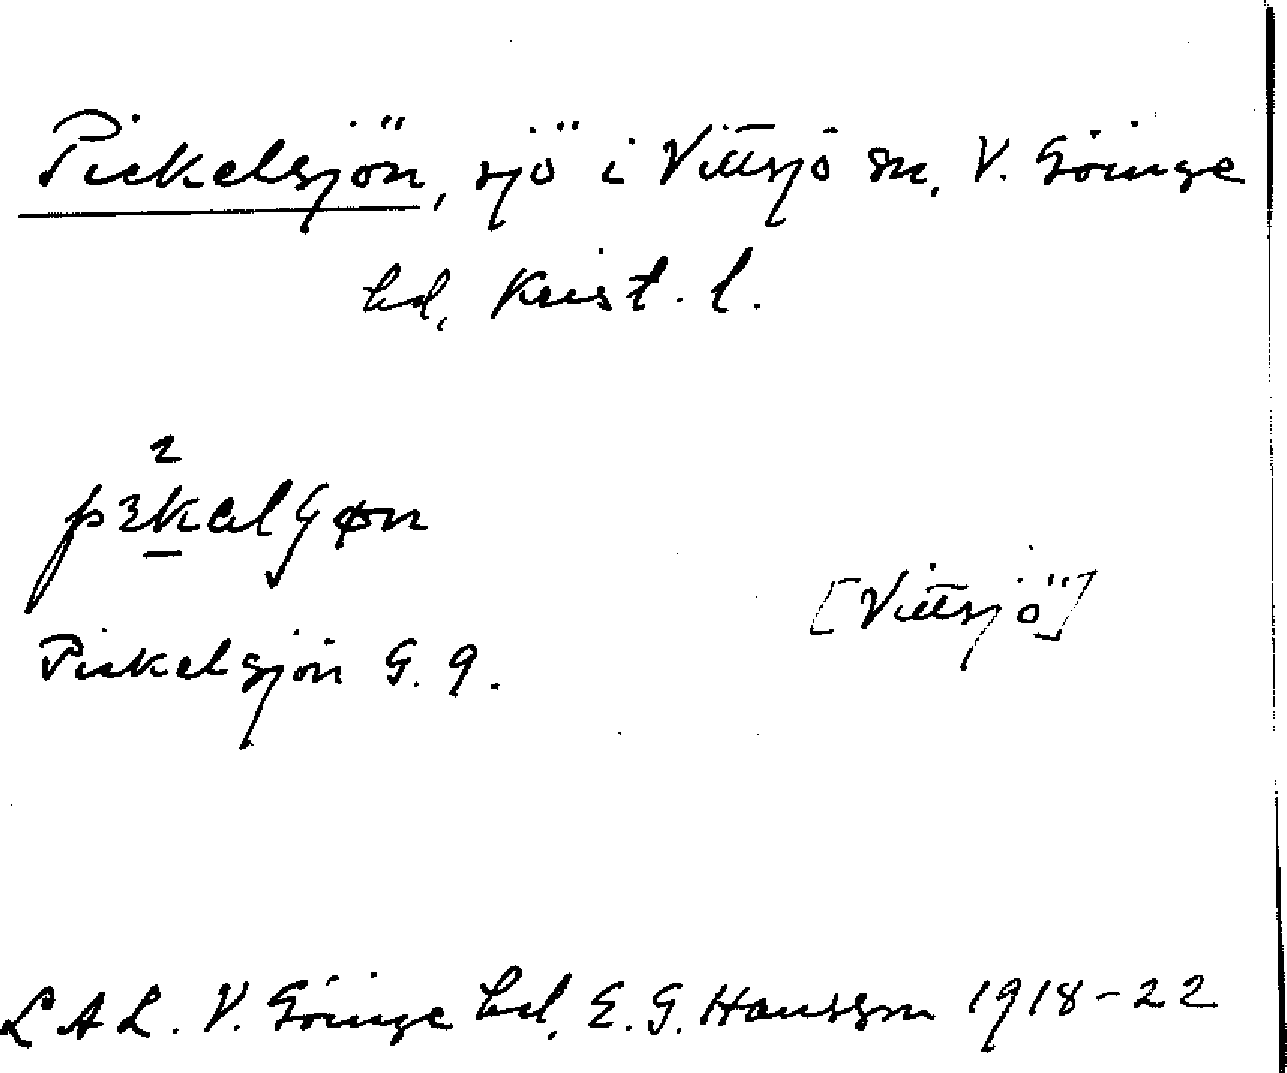 Pickelsjön, sjö i Vittsjö sn, V. Göinge
hd, Krist. l.
[Vittsjö]
Pickelsjön G. 9.
L A L. V. Göinge hd, E. G. Hansson 1918-22